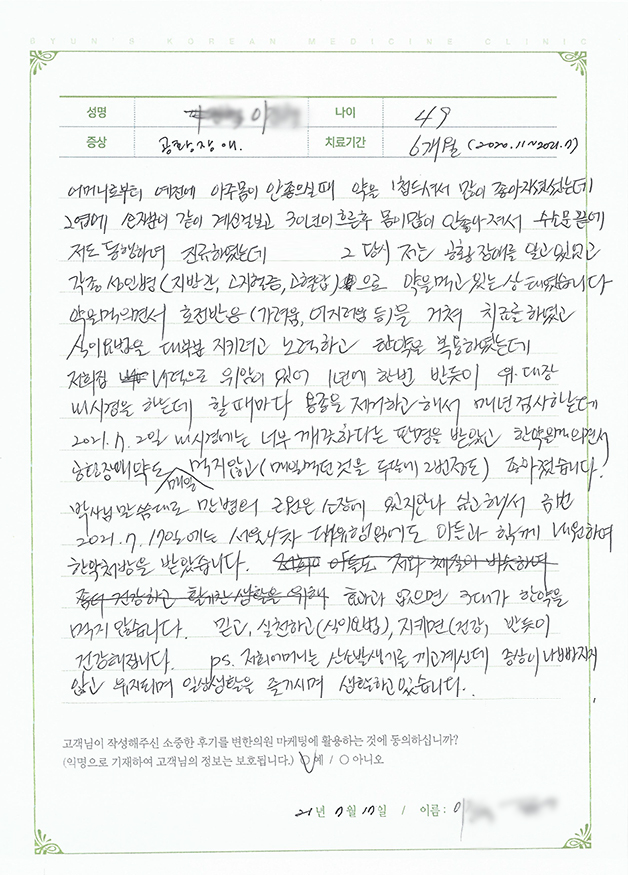 BYUN'S KOREAN MEDICINE CLINIC
성명 이 나이 49
증상 공황장애. 치료기간 6개월 (2020.11~2021.7)
어머니로부터 예전에 아주몸이 안좋으실때 약을 1첩드셔서 많이 좋아지셨었는데
그옆에 같이 계신걸보고 3이년이흐른후 몸이많이 안좋아져서 수소문끝에
저도 동행하여 진료하였는데 그 당시 저는 공황장애를 앓고 있었고
각종 성인병(지방간, 고지혈증, 고혈압)으로 약을먹고 있는 상태였습니다
약을먹으면서 호전반응(가려움, 어지러움 등)을 거쳐 치료를 하였고
식이요법을 대부분 지키려고 노력하고 한약을 복용하였는데
저희집 내력으로 위암이 있어 1년에 한번 반듯이 위·대장
내시경을 하는데 할때마다 용종을 제거하고 해서 매년검사하는데
2021.7.2일 내시경에는 너무 깨끗하다는 판명을 받았고 한약을먹으면서
공황장애약도 매일 먹지않고(매일먹던것을 두달에 2번정도) 좋아졌습니다!
박사님 말씀대로 만병의 근원은 소장에 있지안나 싶고해서 금번
2021.7.17일에는 서울4차 대유행임에도 아들과 함께 내원하여
한약처방을 받았습니다. 저희 아들도 저와 체질이 비슷하며
좀더 건강하고 활기찬 생활을 위해 효과가 없으면 3대가 한약을
먹지 않습니다. 믿고, 실천하고(식이요법), 지키면(건강, 반듯이
건강해집니다. ps. 저희어머니는 산소발생기를 끼고계신데 증상이 나빠지지
않고 유지되며 일상생활을 즐기시며 생활하고있습니다.
고객님이 작성해주신 소중한 후기를 변한의원 마케팅에 활용하는 것에 동의하십니까?
(익명으로 기재하여 고객님의 정보는 보호됩니다.) ○ 예 / ○ 아니오
21년 7월 17일 / 이름 : 이